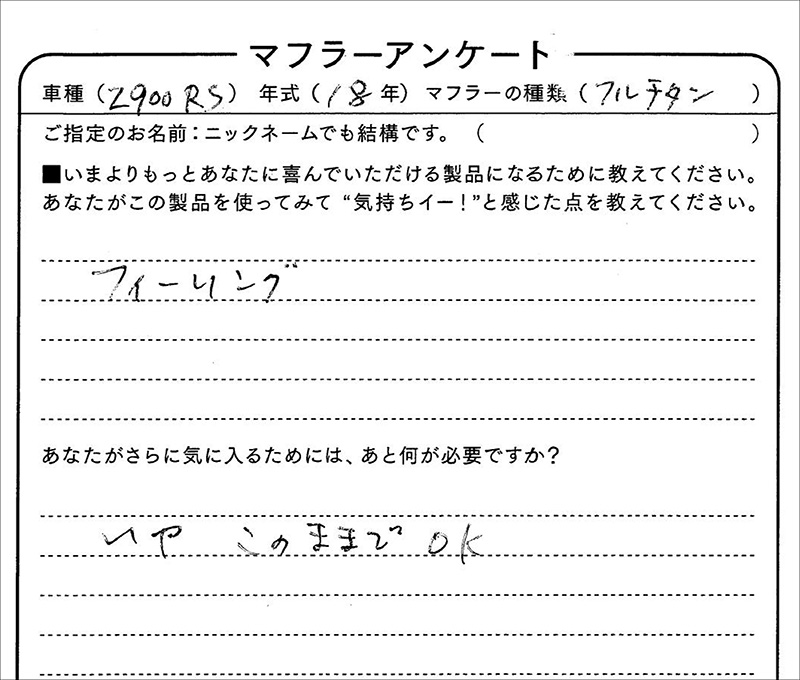 マフラーアンケート
車種（Z900RS） 年式（18年） マフラーの種類（フルチタン ）
ご指定のお名前：ニックネームでも結構です。（ ）
■いまよりもっとあなたに喜んでいただける製品になるために教えてください。
あなたがこの製品を使ってみて“気持ちイー！”と感じた点を教えてください。
フィーリング
あなたがさらに気に入るためには、あと何が必要ですか？
いや このままで OK